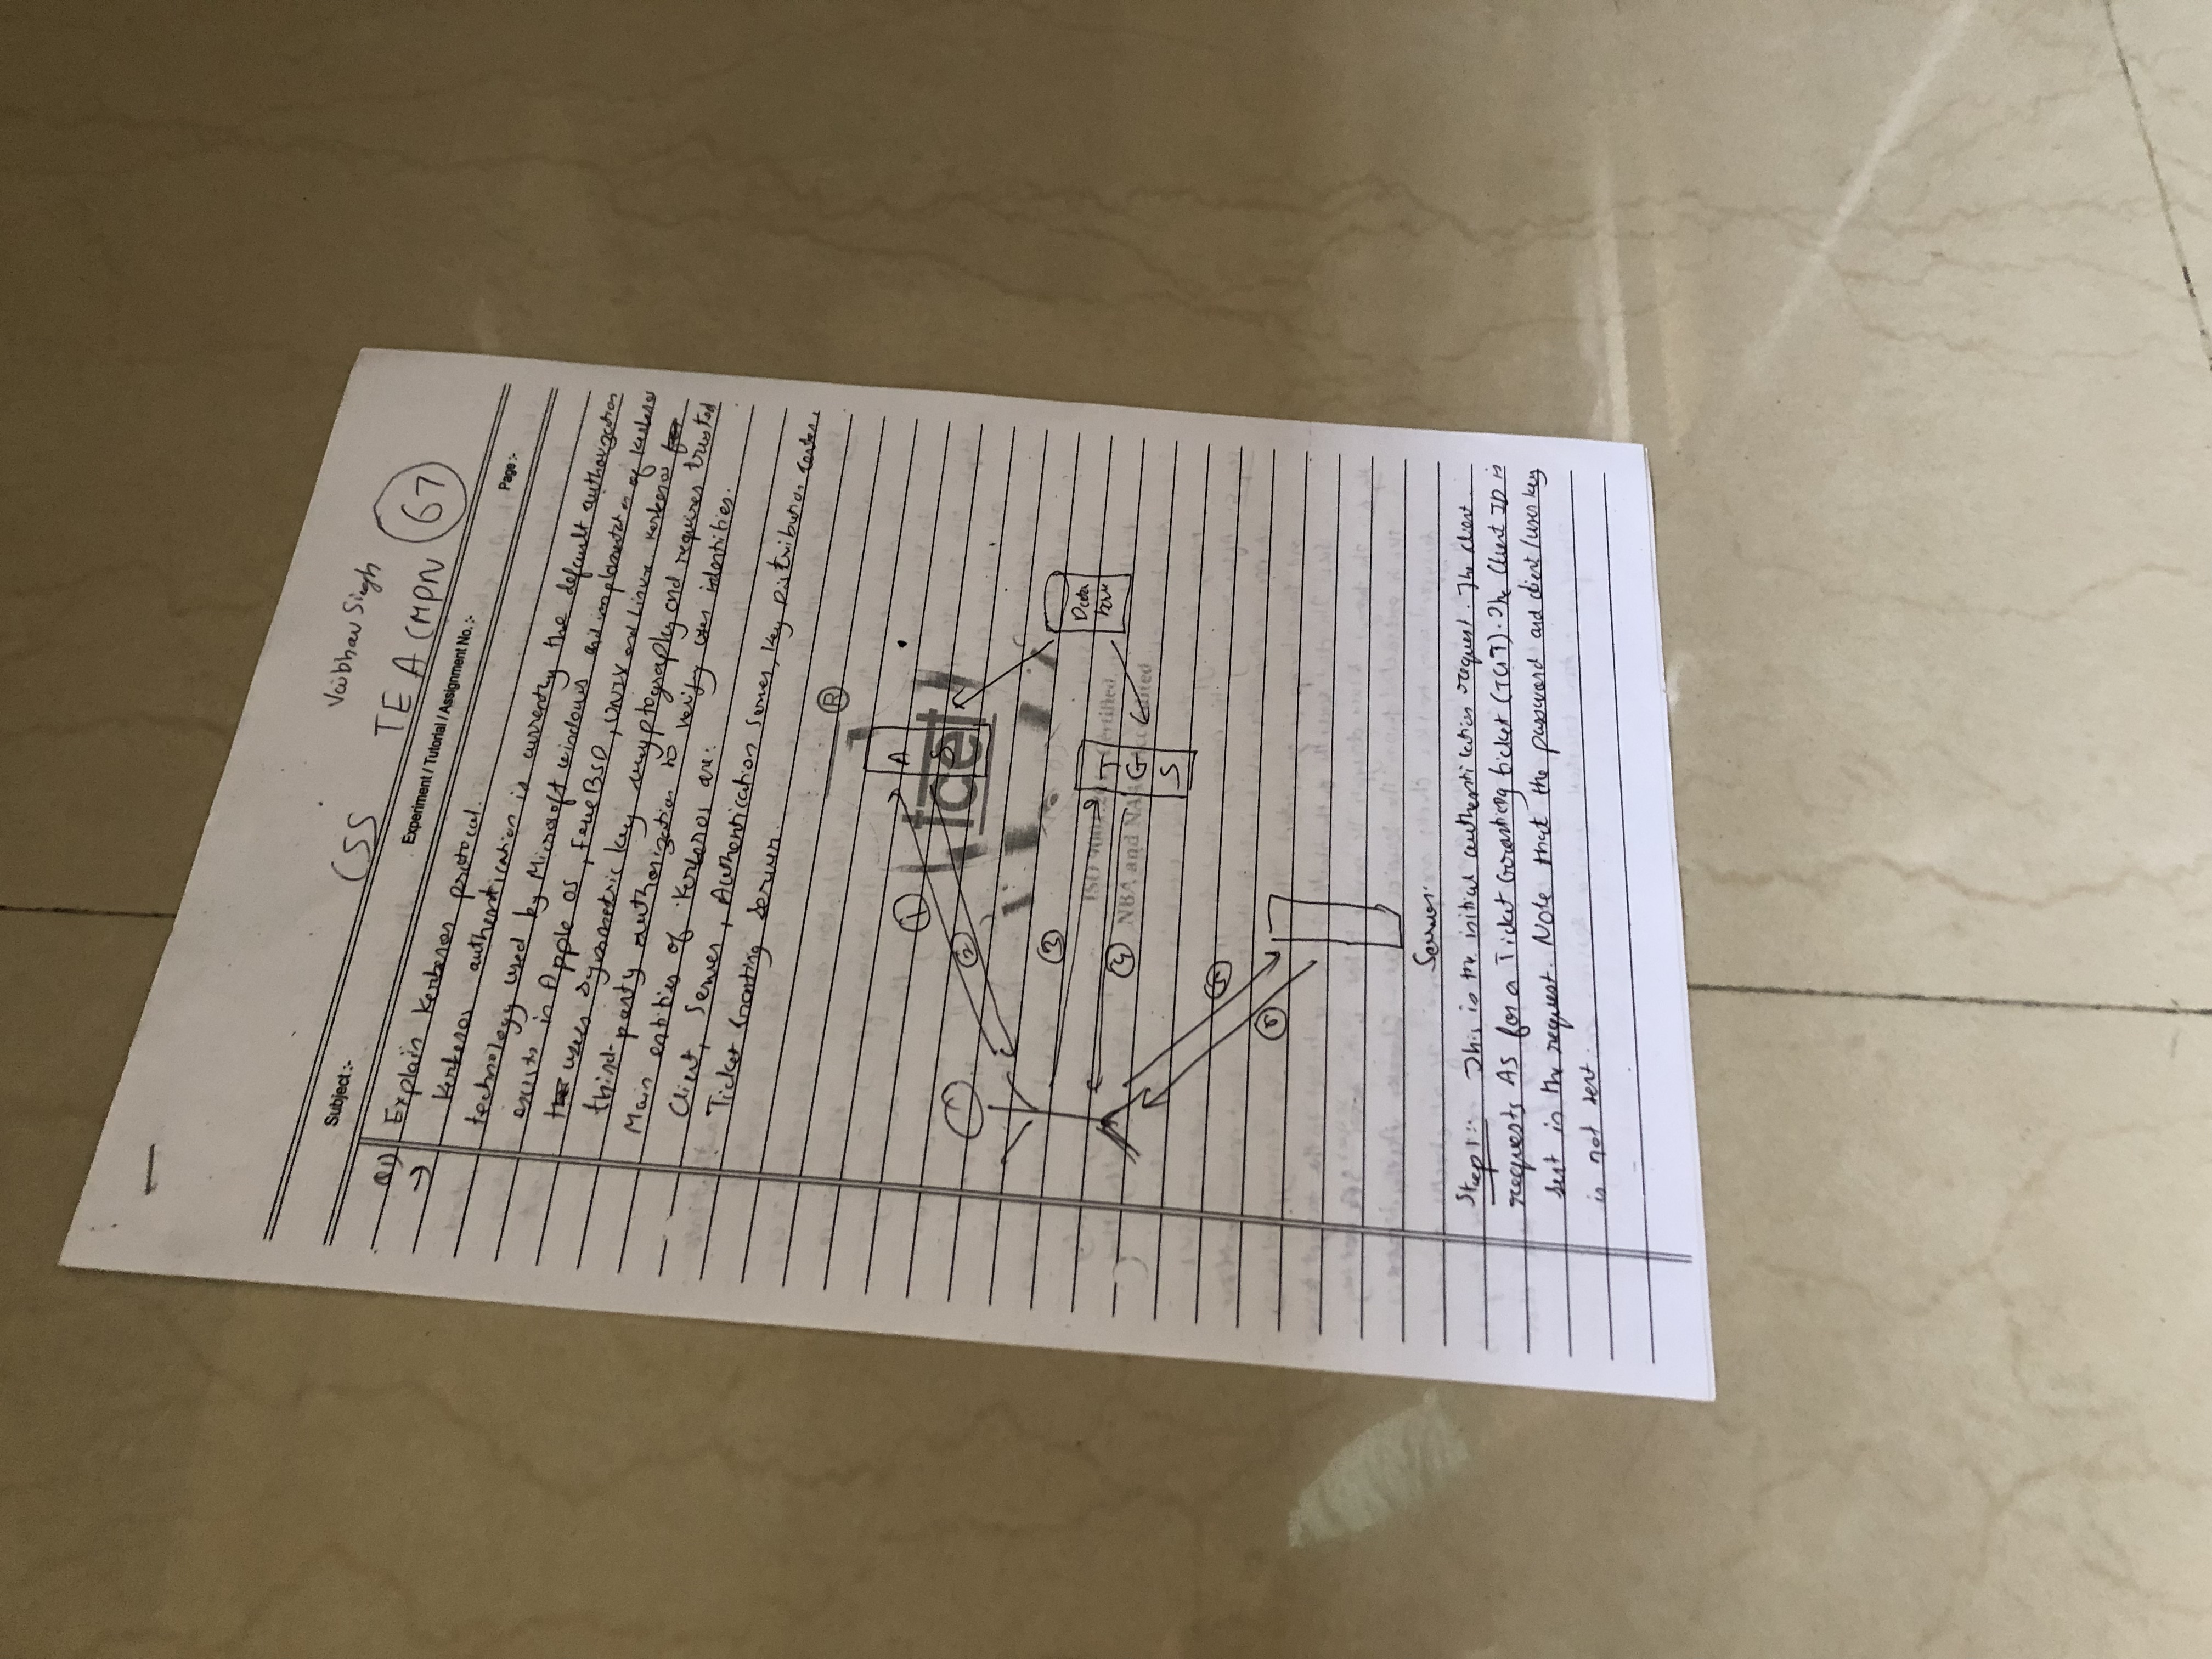 Vaibhav Singh
CSS TE A CMPN 67
Subject:-
Experiment / Tutorial / Assignment No.:-
Page:-
Q1) Explain kerberos protocol.
→ Kerberos authentication is currently the default authorization
technology used by Microsoft windows and implementation of Kerberos
exists in Apple OS, FreeBSD, UNIX and Linux. Kerberos
uses symmetric key cryptography and requires trusted
third-party authorization to verify user identities.
Main entities of Kerberos are:
Client, Server, Authentication Server, Key Distribution Center,
Ticket Granting Server.
B
A
S
1
2
Data
base
3
T
G
S
4
5
6
ticet
NBA and NAAC
Server
Step 1:- This is the initial authentication request. The client
requests AS for a Ticket Granting ticket (TGT). The Client ID is
sent in the request. Note that the password and client/user key
is not sent.